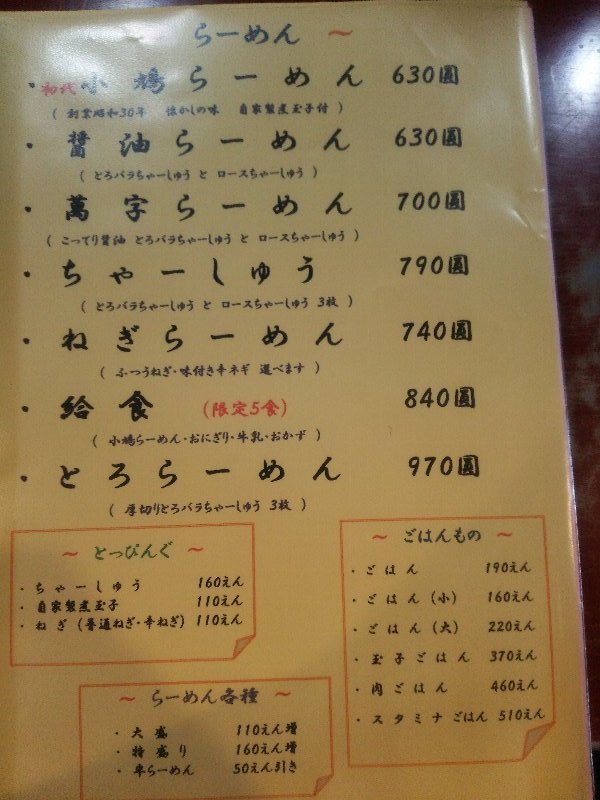 らーめん ～
・初代 小鳩らーめん 630圓
( 創業昭和30年 懐かしの味 自家製煮玉子付 )
・醤油らーめん 630圓
( とろバラちゃーしゅう と ロースちゃーしゅう )
・萬字らーめん 700圓
( こってり醤油 とろバラちゃーしゅう と ロースちゃーしゅう )
・ちゃーしゅう 790圓
( とろバラちゃーしゅう と ロースちゃーしゅう 3枚 )
・ねぎらーめん 740圓
( ふつうねぎ・味付き辛ネギ 選べます )
・給食 (限定5食) 840圓
( 小鳩らーめん・おにぎり・牛乳・おかず )
・とろらーめん 970圓
( 厚切りとろバラちゃーしゅう 3枚 )
～ とっぴんぐ ～
・ちゃーしゅう 160えん
・自家製煮玉子 110えん
・ねぎ (普通ねぎ・辛ねぎ) 110えん
～ ごはんもの ～
・ごはん 190えん
・ごはん (小) 160えん
・ごはん (大) 220えん
・玉子ごはん 370えん
・肉ごはん 460えん
・スタミナごはん 510えん
～ らーめん各種 ～
・大盛 110えん増
・特盛り 160えん増
・半らーめん 50えん引き